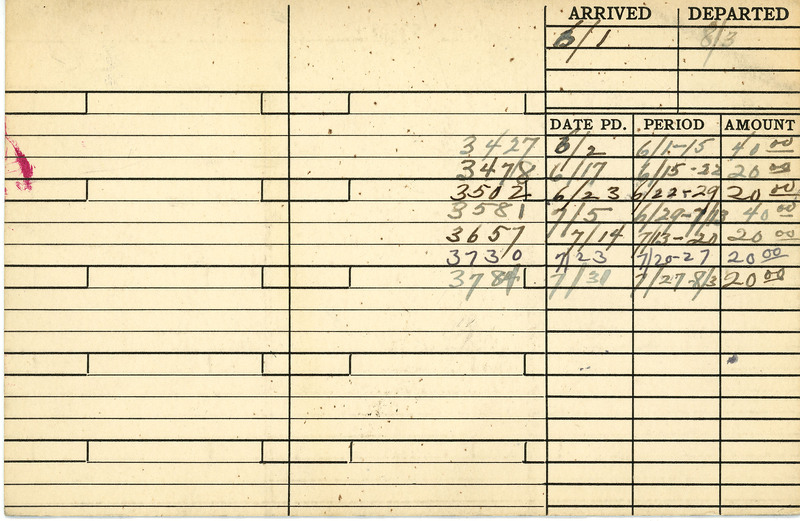 ARRIVED DEPARTED
6/1 8/3
DATE PD. PERIOD AMOUNT
3427 6/2 6/1-15 40 00
3478 6/17 6/15-22 20 00
3502 6/23 6/22-29 20 00
3581 7/5 6/29-7/13 40 00
3657 7/14 7/13-20 20 00
3730 7/23 7/20-27 20 00
3784 7/31 7/27-8/3 20 00